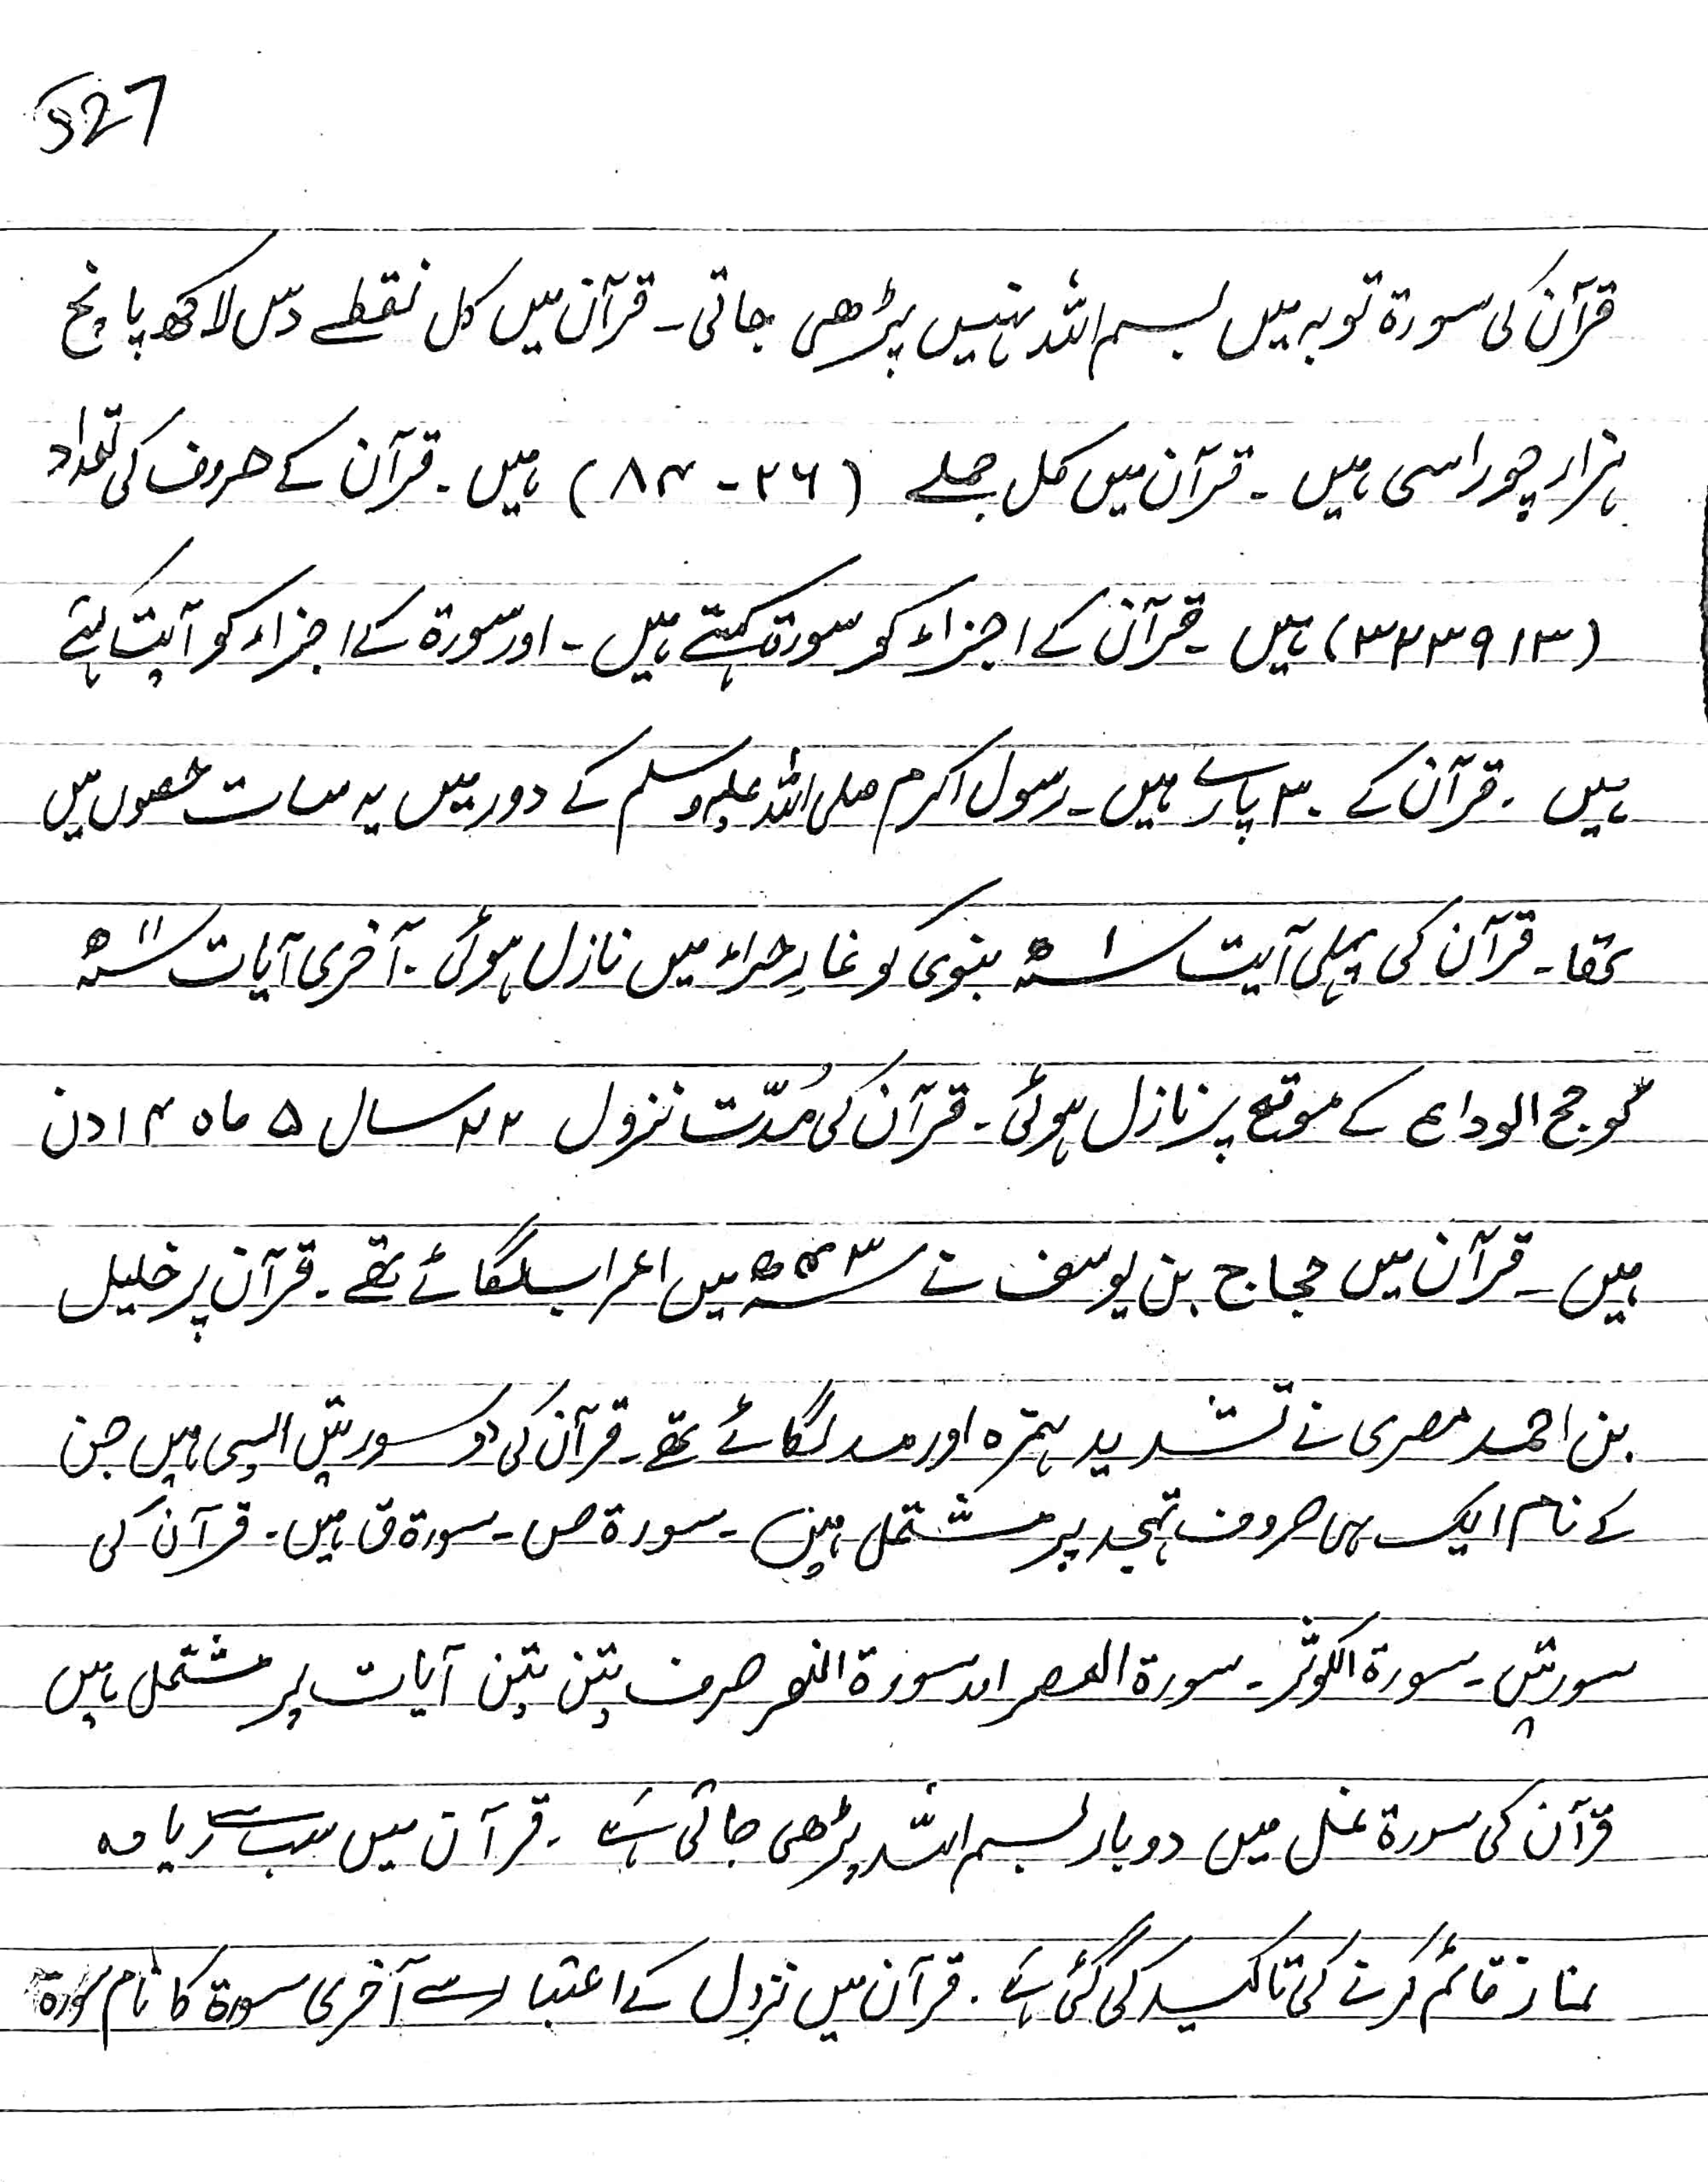 527
قرآن کی سورۃ توبہ میں بسم اللہ نہیں پڑھی جاتی۔ قرآن میں کل نقطے دس لاکھ پانچ
ہزار چوراسی ہیں ۔ قرآن میں کل جملے (۸۴۰۲۶) ہیں ۔ قرآن کے حروف کی تعداد
(۳۲۳۹۱۳) ہیں ۔ قرآن کے اجزاء کو سورۃ کہتے ہیں ۔ اور سورۃ کے اجزاء کو آیت کہتے
ہیں ۔ قرآن کے ۳۰ پارے ہیں ۔ رسول اکرم صلی اللہ علیہ وسلم کے دور میں یہ سات حصوں میں
تھا ۔ قرآن کی پہلی آیت سنہ ۱ھ نبوی کو غارِ حراء میں نازل ہوئی ۔ آخری آیات سنہ ۱۱ھ
کو حج الوداع کے موقع پر نازل ہوئی ۔ قرآن کی مُدّت نزول ۲۲ سال ۵ ماہ ۱۴ دن
ہیں ۔ قرآن میں حجاج بن یوسف نے سنہ ۴۳ھ میں اعراب لگائے تھے ۔ قرآن پر خلیل
بن احمد مصری نے تشدید ہمزہ اور مد لگائے تھے ۔ قرآن کی دو سورتیں ایسی ہیں جن
کے نام ایک ہی حروف تہجد پر مشتمل ہیں ۔ سورۃ ص ۔ سورۃ ق ہیں ۔ قرآن کی
سورتیں ۔ سورۃ الکوثر ۔ سورۃ العصر اور سورۃ النصر صرف تین تین آیات پر مشتمل ہیں
قرآن کی سورۃ نمل میں دو بار بسم اللہ پڑھی جاتی ہے ۔ قرآن میں سب سے زیادہ
نماز قائم کرنے کی تاکید کی گئی ہے ۔ قرآن میں نزول کے اعتبار سے آخری سورۃ کا نام سورۃ